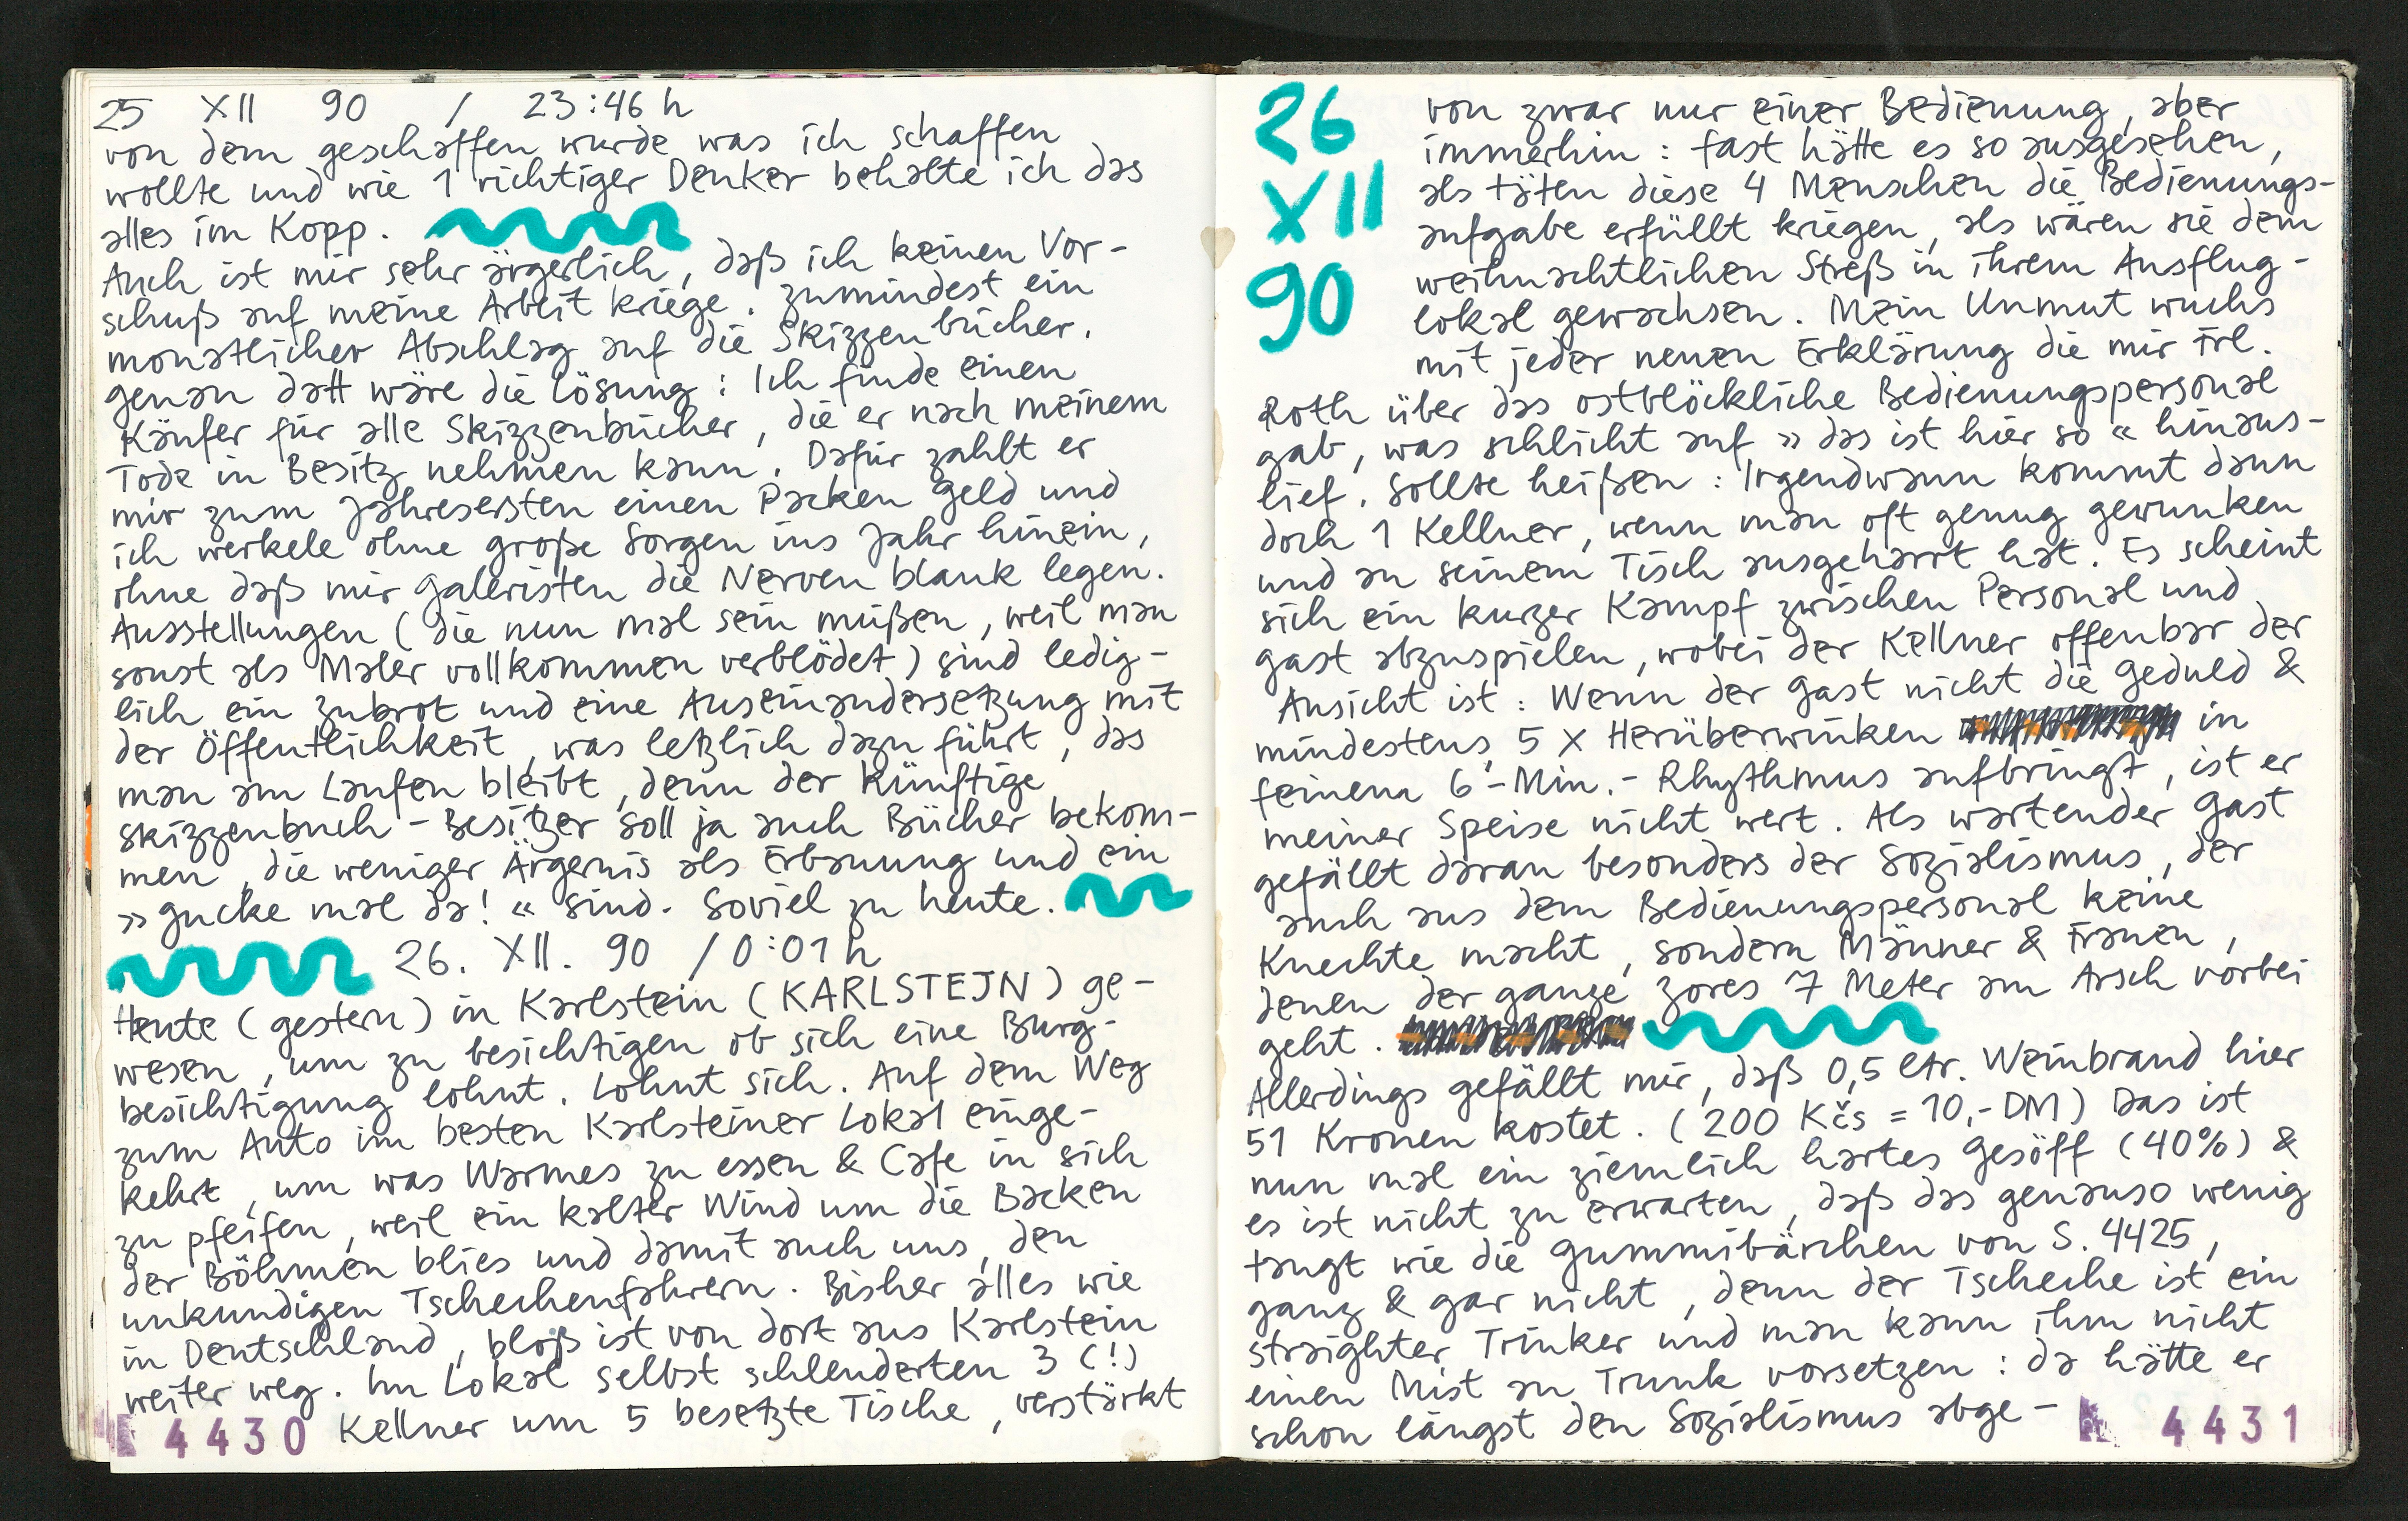 25 XII 90 / 23:46 h
von dem geschaffen wurde was ich schaffen
wollte und wie 1 richtiger Denker behalte ich das
alles im Kopp.
Auch ist mir sehr ärgerlich, daß ich keinen Vor-
schuß auf meine Arbeit kriege. Zumindest ein
monatlicher Abschlag auf die Skizzenbücher.
genau datt wäre die Lösung: Ich finde einen
Käufer für alle Skizzenbücher, die er nach meinem
Tode in Besitz nehmen kann. Dafür zahlt er
mir zum Jahresersten einen Packen Geld und
ich werkele ohne große Sorgen ins Jahr hinein,
ohne daß mir Galeristen die Nerven blank legen.
Ausstellungen (die nun mal sein müßen, weil man
sonst als Maler vollkommen verblödet) sind ledig-
lich ein Zubrot und eine Auseinandersetzung mit
der Öffentlichkeit, was letzlich dazu führt, das
man am Laufen bleibt, denn der künftige
Skizzenbuch-Besitzer soll ja auch Bücher bekom-
men, die weniger Ärgernis als Erbauung und ein
»gucke mal da!« sind. Soviel zu heute.
26. XII. 90 / 0:01 h
Heute (gestern) in Karlstein (KARLSTEJN) ge-
wesen, um zu besichtigen ob sich eine Burg-
besichtigung lohnt. Lohnt sich. Auf dem Weg
zum Auto im besten Karlsteiner Lokal einge-
kehrt, um was Warmes zu essen & Cafe in sich
zu pfeifen, weil ein kalter Wind um die Backen
der Böhmen blies und damit auch uns, den
unkundigen Tschechenfahrern. Bisher alles wie
in Deutschland, bloß ist von dort aus Karlstein
weiter weg. Im Lokal selbst schlenderten 3 (!)
4430 Kellner um 5 besetzte Tische, verstärkt
26
XII
90
von zwar nur einer Bedienung, aber
immerhin: fast hätte es so ausgesehen,
als täten diese 4 Menschen die Bedienungs-
aufgabe erfüllt kriegen, als wären sie dem
weihnachtlichen Streß in ihrem Ausflug-
lokal gewachsen. Mein Unmut wuchs
mit jeder neuen Erklärung die mir Frl.
Roth über das ostblöckliche Bedienungspersonal
gab, was schlicht auf »das ist hier so« hinaus-
lief. Sollte heißen: Irgendwann kommt dann
doch 1 Kellner, wenn man oft genug gewunken
und an seinem Tisch ausgeharrt hat. Es scheint
sich ein kurzer Kampf zwischen Personal und
Gast abzuspielen, wobei der Kellner offenbar der
Ansicht ist: Wenn der Gast nicht die Geduld &
mindestens 5 x Herüberwinken in
feinem 6-Min.-Rhythmus aufbringt, ist er
meiner Speise nicht wert. Als wartender Gast
gefällt daran besonders der Sozialismus, der
auch aus dem Bedienungspersonal keine
Knechte macht, sondern Männer & Frauen,
denen der ganze Zores 7 Meter am Arsch vorbei
geht.
Allerdings gefällt mir, daß 0,5 ltr. Weinbrand hier
51 Kronen kostet. (200 Kčs = 10,- DM) Das ist
nun mal ein ziemlich hartes Gesöff (40%) &
es ist nicht zu erwarten, daß das genauso wenig
taugt wie die Gummibärchen von S. 4425,
ganz & gar nicht, denn der Tscheche ist ein
straighter Trinker und man kann ihm nicht
einen Mist an Trunk vorsetzen: da hätte er
schon längst den Sozialismus abge-
4431